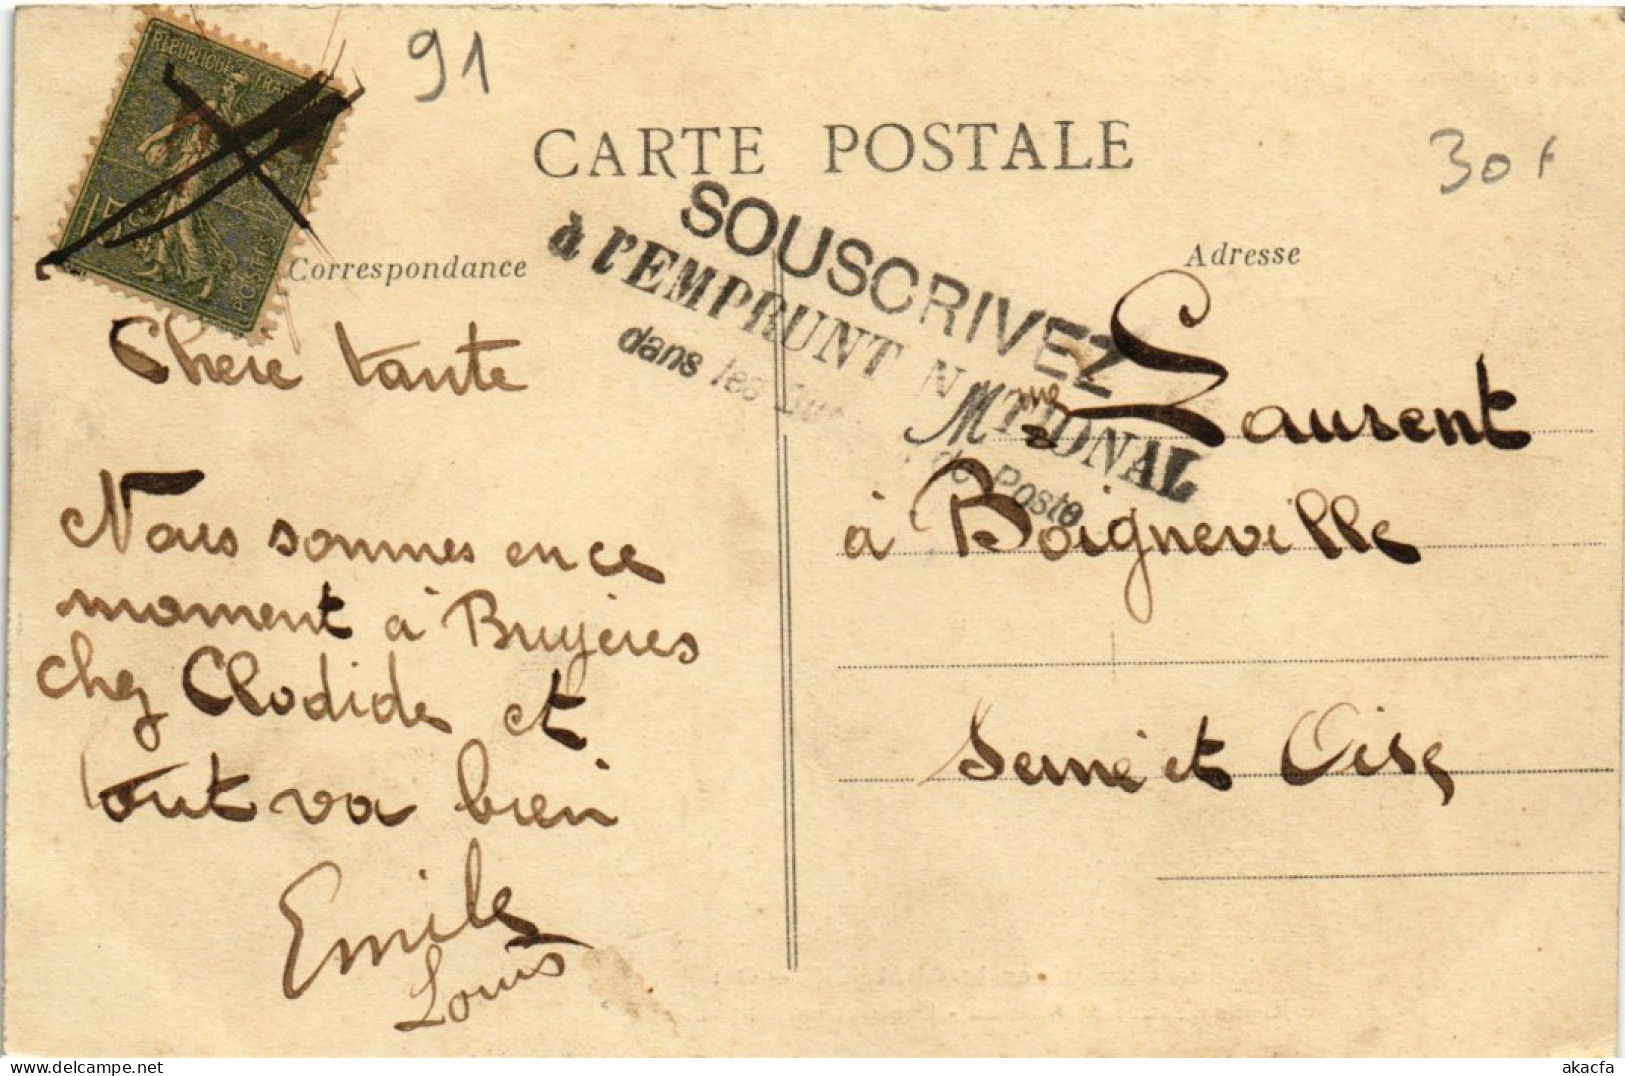 91
CARTE POSTALE
30 F
RÉPUBLIQUE FRANÇAISE
15c
POSTES
SOUSCRIVEZ
à l'EMPRUNT NATIONAL
dans les
de Poste
Correspondance
Chere tante
Nous sommes en ce
moment à Bruyeres
chez Clodide et
tout va bien
Emile
Louis
Adresse
Mme Laurent
à Boigneville
Seine et Oise
akacfa